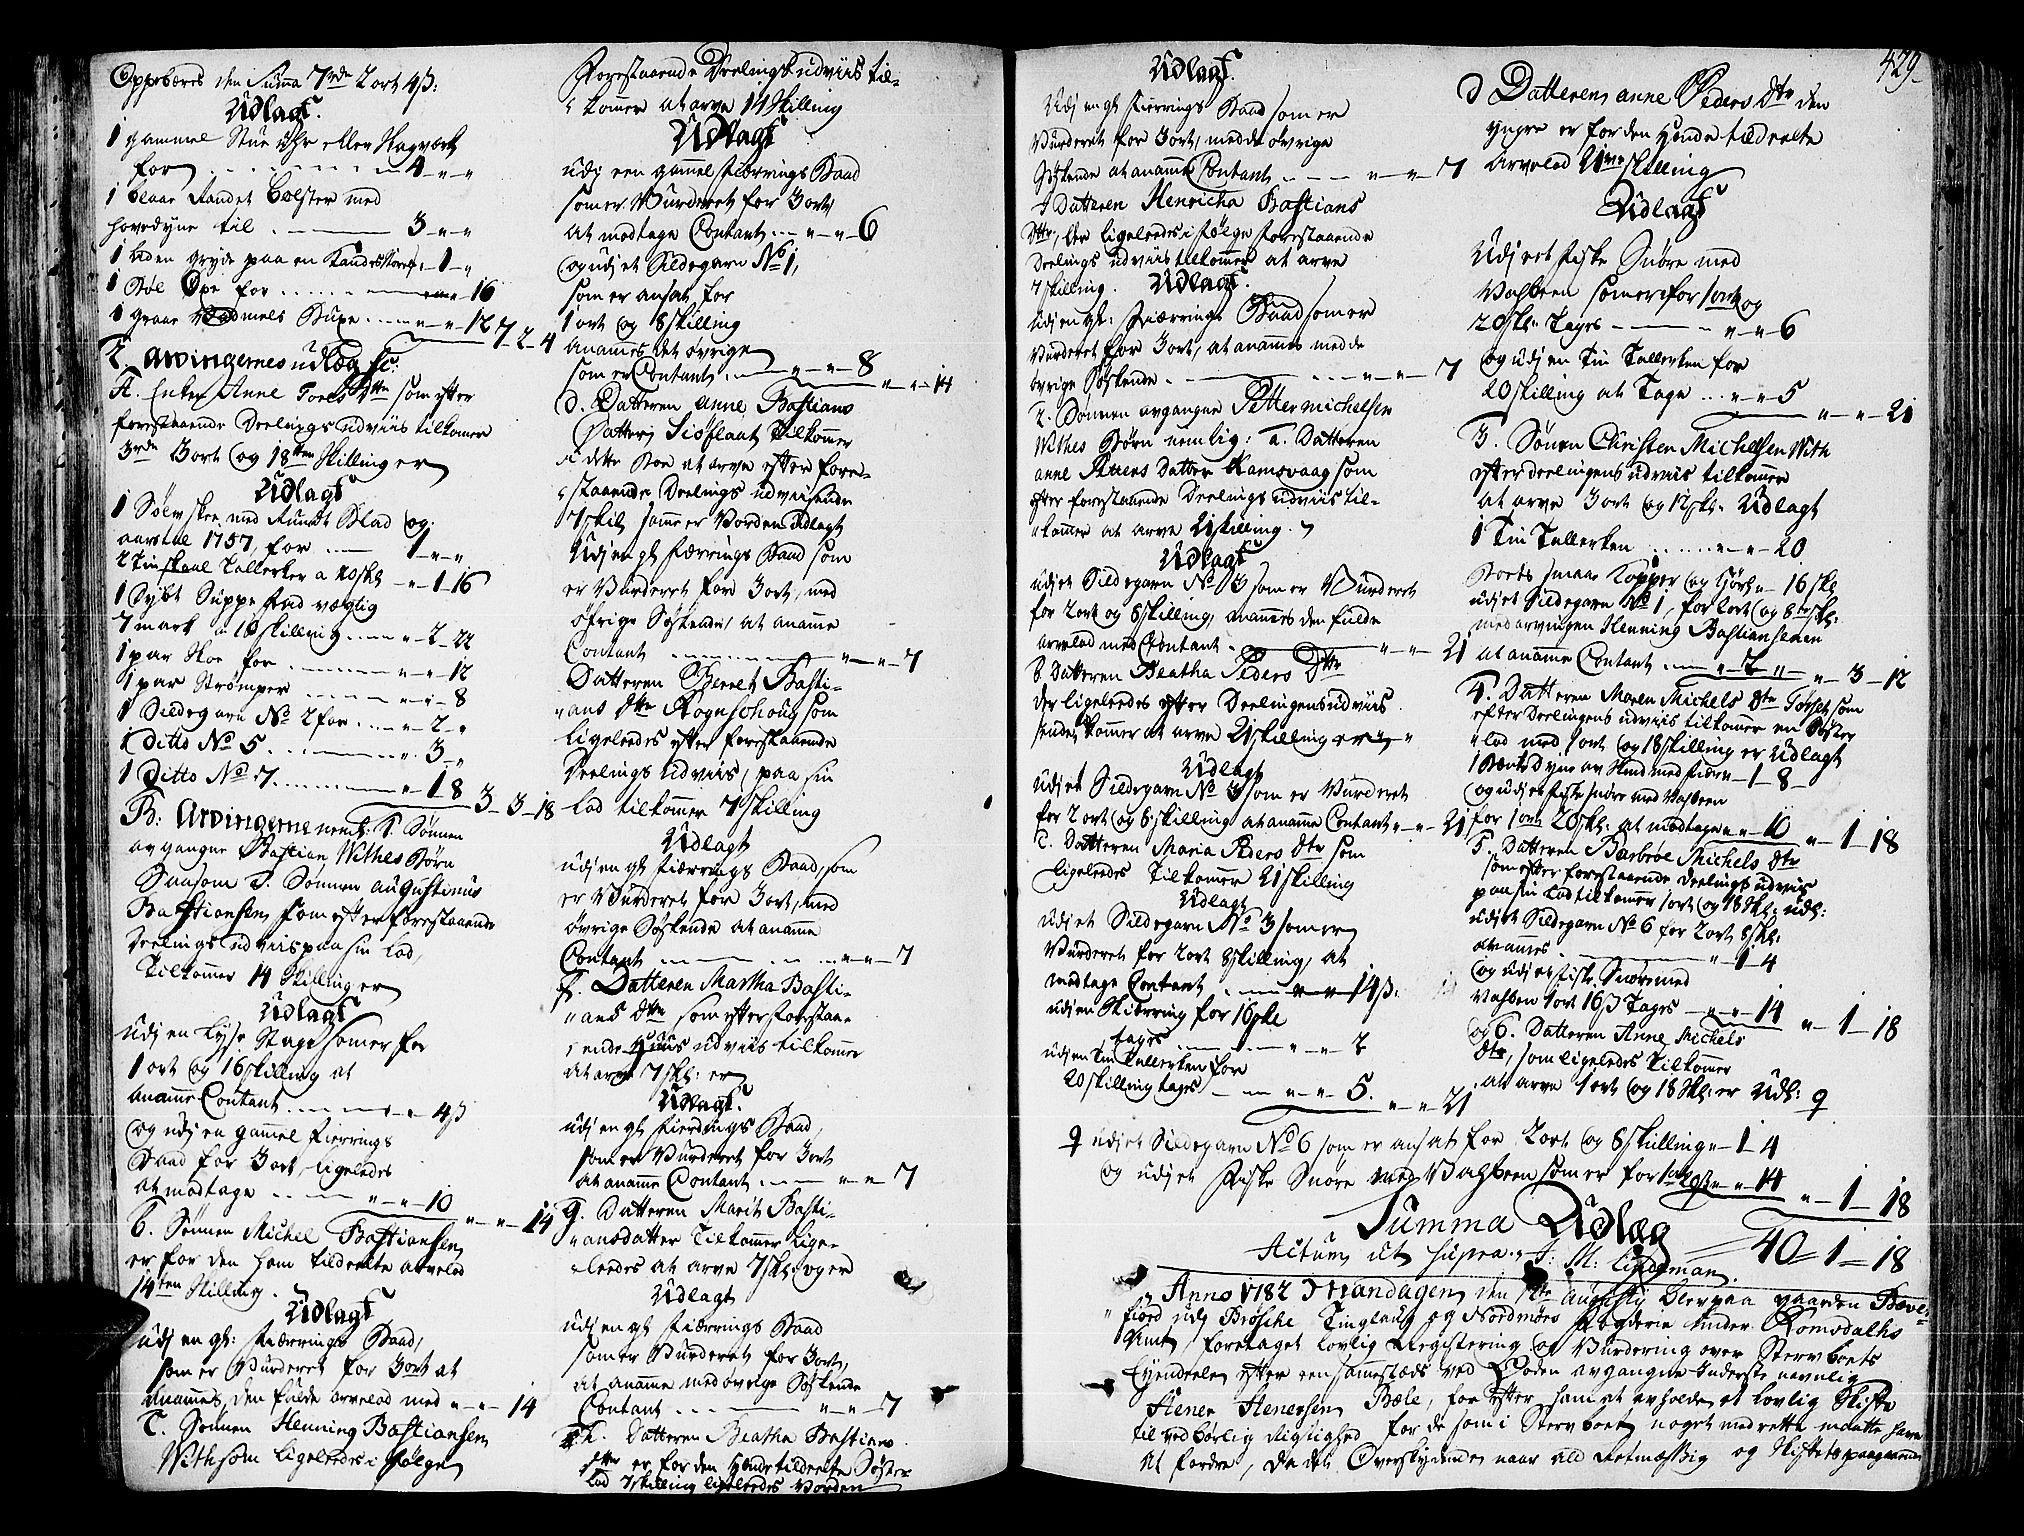 Oppebæres den Summa 7rdr 2 ort 4 s:
Udlagt.
1 gammel Stue Uhr eller Slagværk
for - 4 - " - "
1 blaae Randet Bolster med
hovedyne til - 3 - " - "
1 liden gryde paa en Kandes Storr: 1 - "
1 Bøl Øxe for - 16
1 graae Vadmels Buxe - " - " - 12 7 - 2 - 4
2. Arvingernes udlæg sc:
A. Enken Anne Toers Dtter som efter
forestaaende Deelings udviis tilkomer
3rdr 3 ort og 18ten Skilling er
Udlagt
1 Sølvskee med Rundt Blad og
aarstal 1757, for - 1 - " - "
2 Tin skaal Tallerker a 20 skl - " - 1 - 16
1 Dybt Suppe Fad vægtig
7 mark a 10 skilling - " - 2 - 22
1 par Skoe for - " - " - 12
1 par Strømper - " - " - 8
1 Sildegarn No 2 for - " - 2 - "
1 Ditto No 5 - " - 3 - "
1 Ditto No 7 - " - 1 - 8 3 - 3 - 18
B: Arvingerne neml: 1. Sønnen
avgangne Bastian Withes Børn
Saasom a. Sønnen Augustinus
Bastiansen som efter forestaaende
Deelings udviis paa sin Lod,
Tilkommer 14 Skilling er
Udlagt
Udj en Lyse Stage som er for
1 ort og 16 skilling at
anamme Contant - " - 4 s
og udj en gammel Fierrings
Baad for 3 ort, ligeledes
at modtage - " - " - 10 " - " - 14
b. Sønnen Michel Bastiansen
er for den ham tildeelte arvelod
14ten Skilling.
Udlagt
udj en gl: Fiærrings Baad,
som er Vurderet for 3 ort at
anammes den fulde arvelod med " - " - 14
c. Sønnen Henning Bastiansen
With som ligeledes i følge
Forestaaende Deelings udviis til-
kommer at arve 14 Skilling
Udlagt
udj een gammel Fiærrings Baad
som er Vurderet for 3 ort,
at modtage Contant - " - " - 6
og udj et Sildegarn No 1,
som er ansat for
1 ort og 8 skilling
anammes det øvrige
som er Contant - " - " - 8 " - " - 14
d. Datteren Anne Bastians
Datter Siøflaat tilkommer
i dette Boe at arve efter fore-
staaende Deelings udviisende
7 Skil, samme er Vorden Udlagt
Udj en gl Fiærrings Baad som
er Vurderet for 3 ort, med
øfrige Søskende, at anamme
Contant - " - " - 7
Datteren Berret Basti-
ans Dtter Rognschoug som
ligeledes efter forestaaende
Deelings Udviis, paa sin
Lod tilkommer 7 skilling
Udlagt
udj en gl Fiærrings Baad, som
er Vurderet for 3 ort, med
øvrige Søskende at anamme
Contant - " - " - 7
f. Datteren Martha Basti-
ans Dtter som efter forestaa-
ende udviis tilkommer
at arve 7 skl: er
Udlagt.
udj en gl Fierdings Baad,
som er Vurderet for 3 ort
at anamme Contant - " - " - 7
g. Datteren Marit Basti-
ansdatter Tilkommer lige-
leedes at arve 7 skl: og er
Udlagt
udj en gl Fiærrings Baad
som er Vurderet for 3 ort,
at anamme med øvrige Søskende
Contant - " - " - 7
h. Datteren Beatha Bastians
Dtter er for den Hende tildeelte Søster
Lod 7 skilling ligeleedes Vorden
429
Udlagt.
Udj en gl Fierrings Baad som er
Vurderet for 3 ort, med de øvrige
Søskende at anamme Contant - " - " - 7
i Datteren Henricha Bastians
Dtter, der ligeleedes i følge forestaaende
Deelings udviis tilkommer at arve
7 skilling. Udlagt.
udj en gl: Fiærrings Baad som er
Vurderet for 3 ort, at anammes med de
øvrige Søskende - " - " - 7
2. Sønnen avgangne Petter Michelsen
Withes Børn nemlig: a. Datteren
Anne Peders Datter Ramsvaag som
efter forestaaende Deelings udviis til-
kommer at arve 21 skilling
Udlagt
udj et Sildegarn No 3 som er Vurderet
for 2 ort og 8 skilling, anammes den fulde
arvelod med Contant - " - " - 21
b Datteren Beatha Peders Dtter
der ligeleedes efter Deelingens udviis
sende, kommer at arve 21 skilling er
Udlagt
udj et Sildegarn No 3 som er Vurderet
for 2 ort og 8 skilling at anamme Contant " - " - 21
c. Datteren Maria Peders Dtr som
ligeleedes Tilkommer 21 skilling
Udlagt
udj et Sildegarn No 3 som er
Vurderet for 2 ort 8 skilling, at
modtage Contant - " - " - 14 s:
udj en Skierring for 16 skl
tages - " - " - 2
udj en Tin Tallerken for
20 skilling tages - " - " - 5. " - " - 21
d Datteren Anne Peders Dtr den
yngre er for den Hende tildeelte
arvelod 21 skilling
Udlagt
Udj et Fiske Snøre med
Vasbeen som er for 1 ort og
20 skl: tages - " - " - 6
og udj en Tin Tallerken for
20 skilling at Tage - " - " - 5 " - " - 21
3. Sønen Christen Michelsen With
efter deelingens udviis tilkommer
at arve 3 ort og 12 skl: Udlagt
1 Tin Tallerken - " - " - 20
Boets smaae Kopper og Kørler " - 16 skl
udj et Sildegarn No 1, for 2 ort og 8te skl:
med arvingen Henning Bastiansenen
at anamme Contant - " - 2 " - " - 3 - 12
4. Datteren Maren Michels Dtr Torset som
efter Deelingens udviis tilkommer en Søster
lod med 1 ort og 18 skilling er Udlagt
1 Benke Dyne av Skind med fiær " - 1 - 8 -
og udj et fiske snøre med Vasbeen
for 1 ort 20 skl: at modtage " - " - 10 " - 1 - 18
5. Datteren Barbroe Michels Dtr
som efter forestaaende Deelings udviis
paa sin Lod tilkommer 1 ort og 18 skl: udl:
udj et Sildegarn No 6 for 2 ort 8 skl:
anammes - " - 1 - 4
og udj et fiske Snøre med
Vasbeen 1 ort 16 s Tages - " - " - 14 " - 1 - 18
og 6. Datteren Anne Michels
Dtr, som ligeleedes tilkommer
at arve 1 ort og 18 skl: er Udl:
udj et Sildegarn No 6 som er ansat for 2 ort og 8 skilling " - 1 - 4
og udj et Fiske Snøre med Vasbeen som er for 1 ort 20 s " - " - 14 " - 1 - 18
Summa Udlæg 40 - 1 - 18
Actum ut supra. J: M: Lindeman
Anno 1782 Mandagen den 12te Augustij blev paa gaarden Bæve-
fiord udj Brøsche Tinglaug og Nordmørs Fogderie under Romsdahls
Amt, foretaget lovlig Registering og Vurdering over Stervboets
Eyendeele efter een sammesteds ved Døden avgangne Inderste navnlig
Stener Stenersen Bæle, for efter ham at avholde et lovlig Skifte
til vedbørlig Rigtighed for de som i Stervboet noget med rette maatte have
at fordre, da det Overskydende naar ald Retmæssig og Skiftets paagaaende